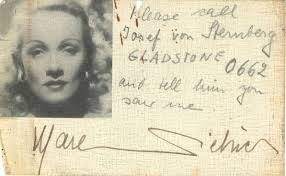 Please call
Josef von Sternberg
GLADSTONE 0662
and tell him you
saw me
Marlene Dietrich